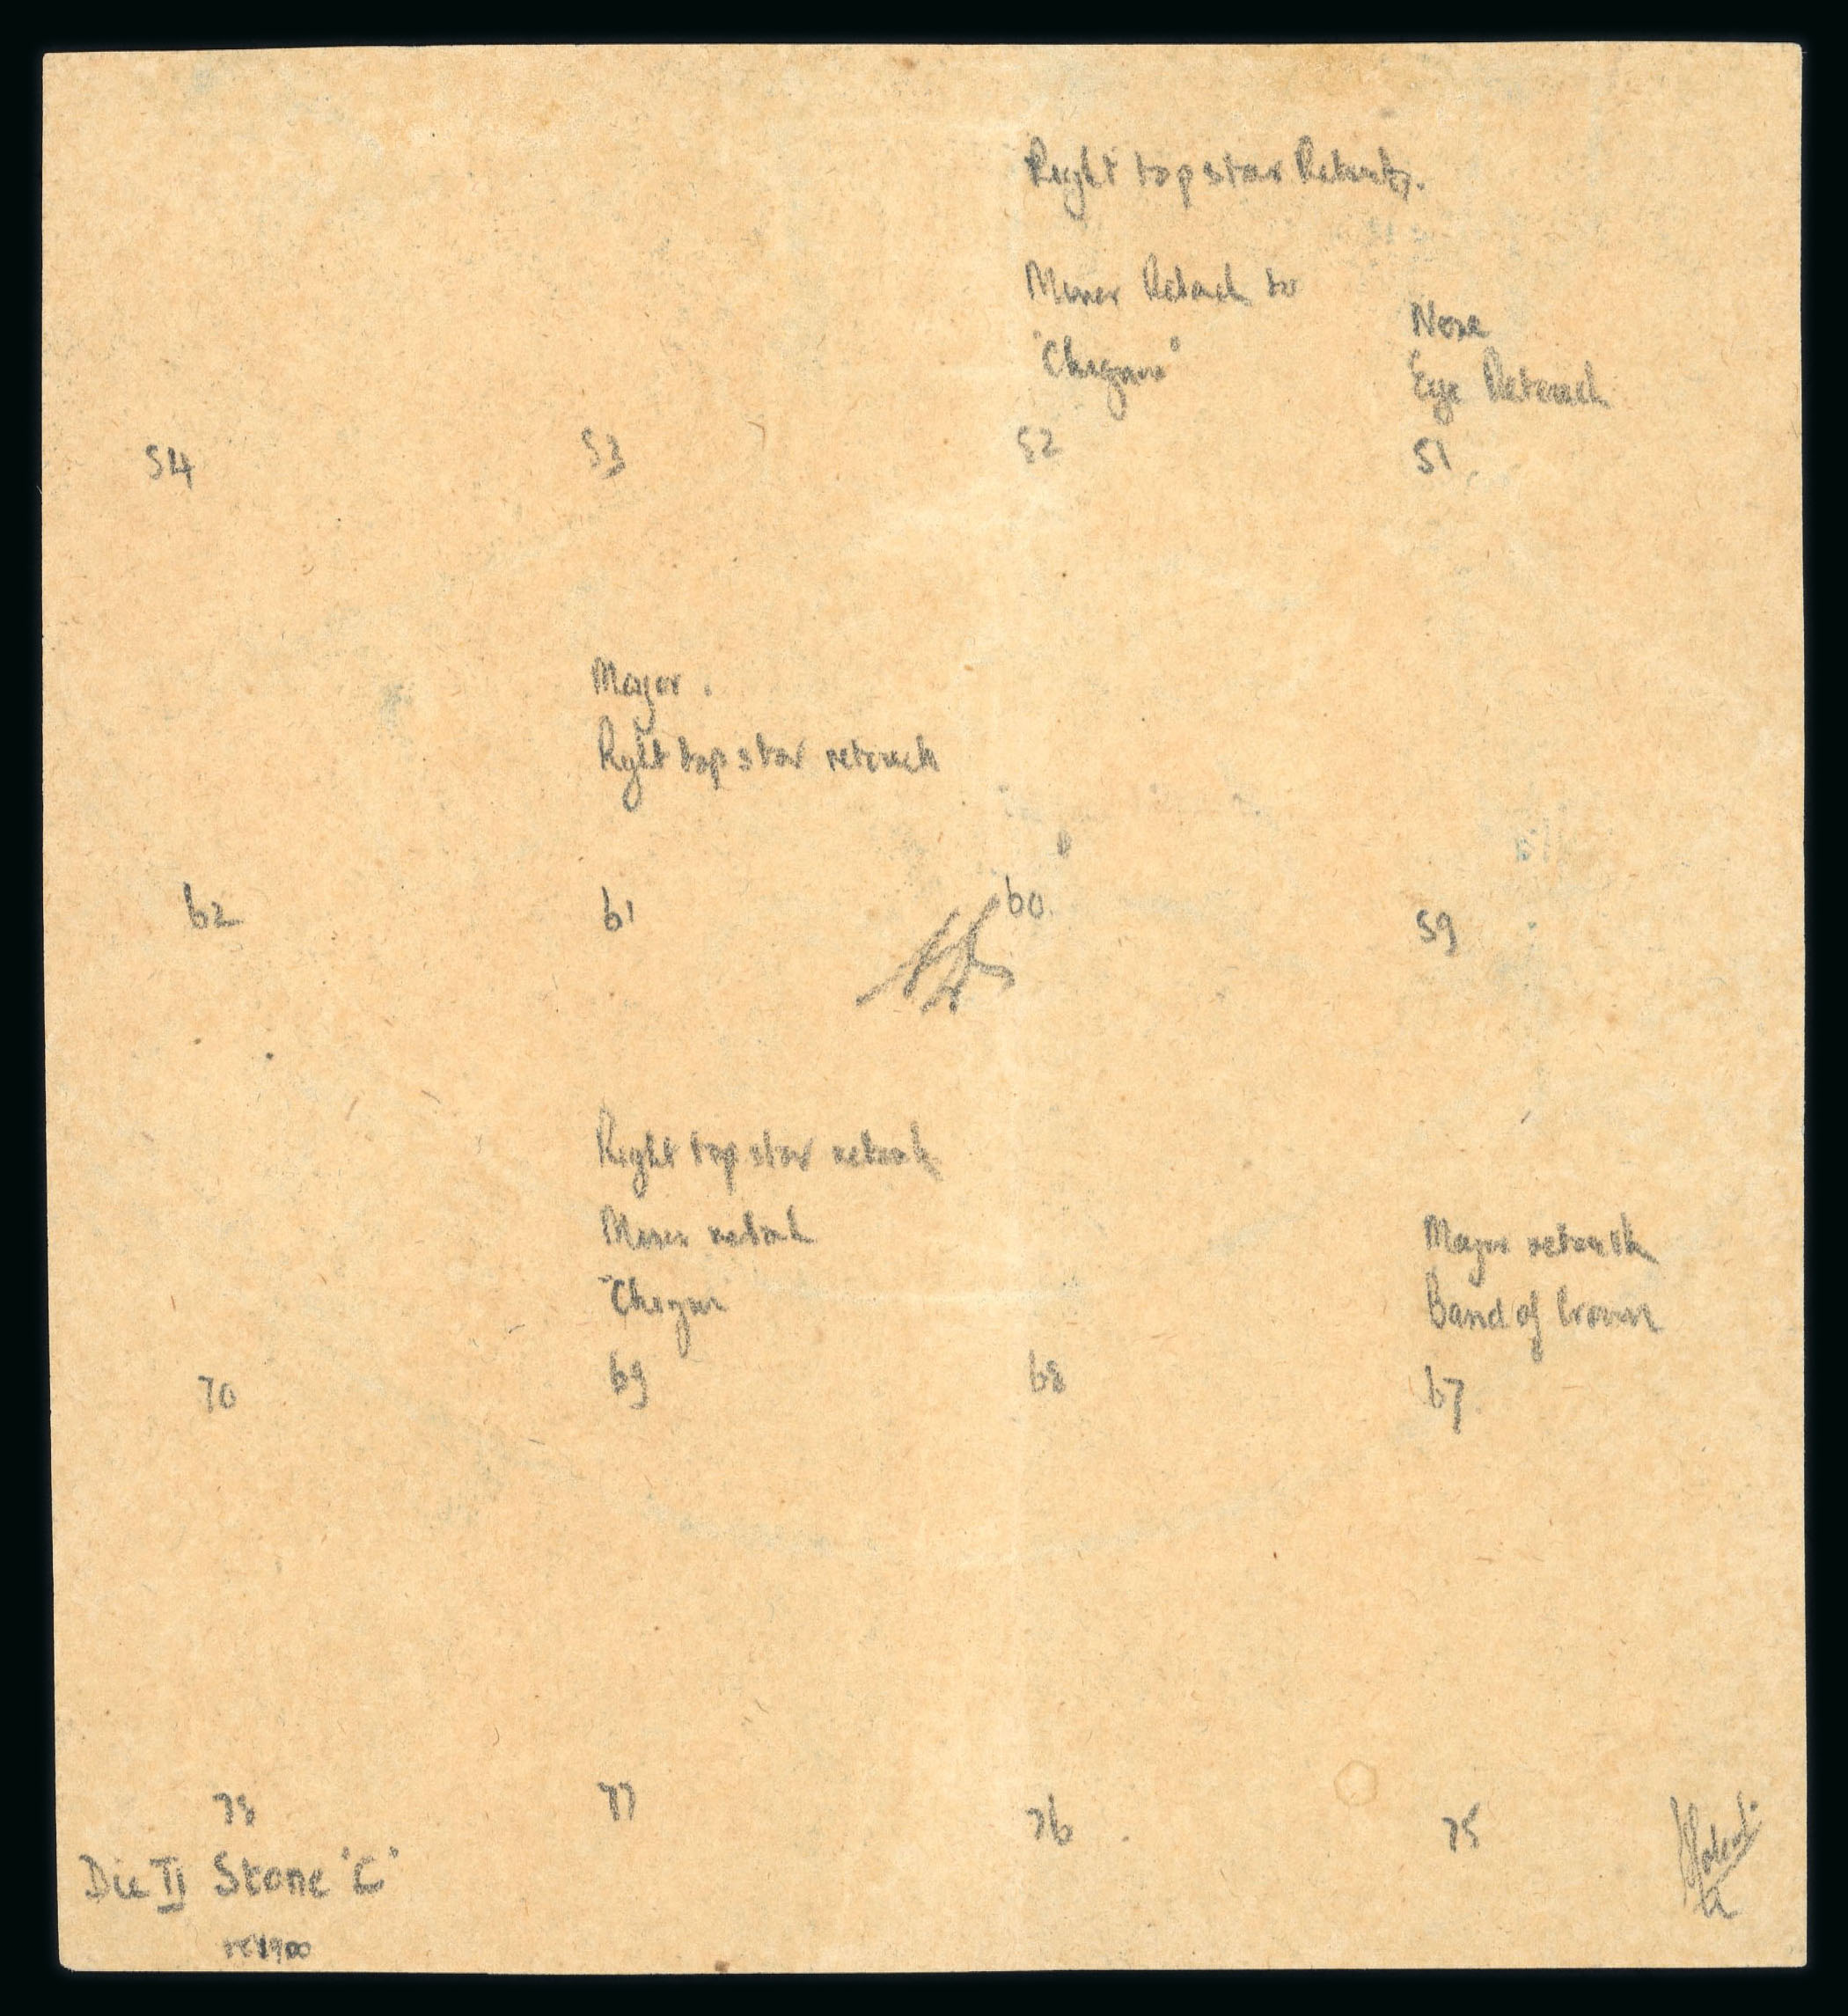 Right top star Retouch.
Minor Retouch to
"Chignon"
Nose
Eye Retouch
54 53 52 51
Major.
Right top star retouch
62 61 60 59
Right top star retouch
Minor retouch
"Chignon
Major retouch
Band of Crown
70 69 68 67
78 77 76 75
Die II Stone "C"